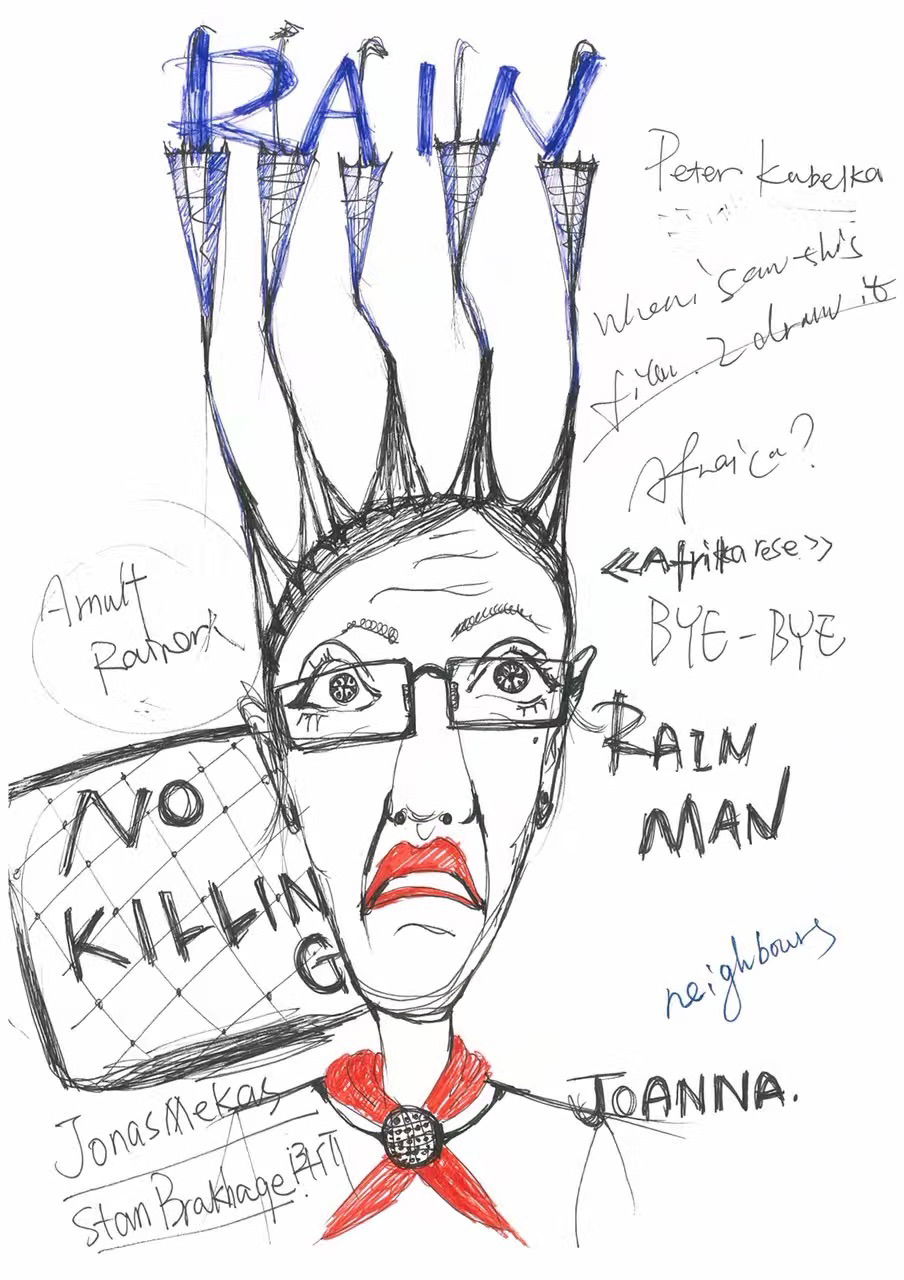 RAIN
Peter Kubelka
When i saw this
film. I draw it
Africa?
<<Afrikarese>>
BYE-BYE
Arnulf
Rainer
RAIN
MAN
NO
KILLIN
G
neighbours
JOANNA.
Jonas Mekas
Stan Brakhage